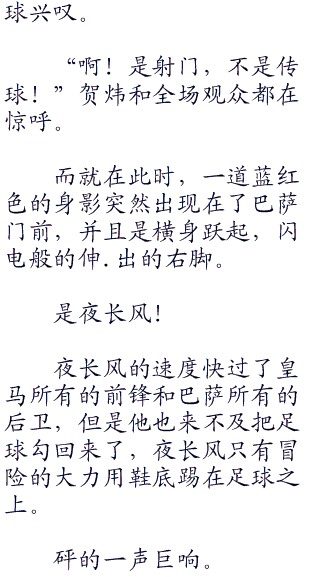 球兴叹。
“啊！是射门，不是传
球！”贺炜和全场观众都在
惊呼。
而就在此时，一道蓝红
色的身影突然出现在了巴萨
门前，并且是横身跃起，闪
电般的伸.出的右脚。
是夜长风！
夜长风的速度快过了皇
马所有的前锋和巴萨所有的
后卫，但是他也来不及把足
球勾回来了，夜长风只有冒
险的大力用鞋底踢在足球之
上。
砰的一声巨响。